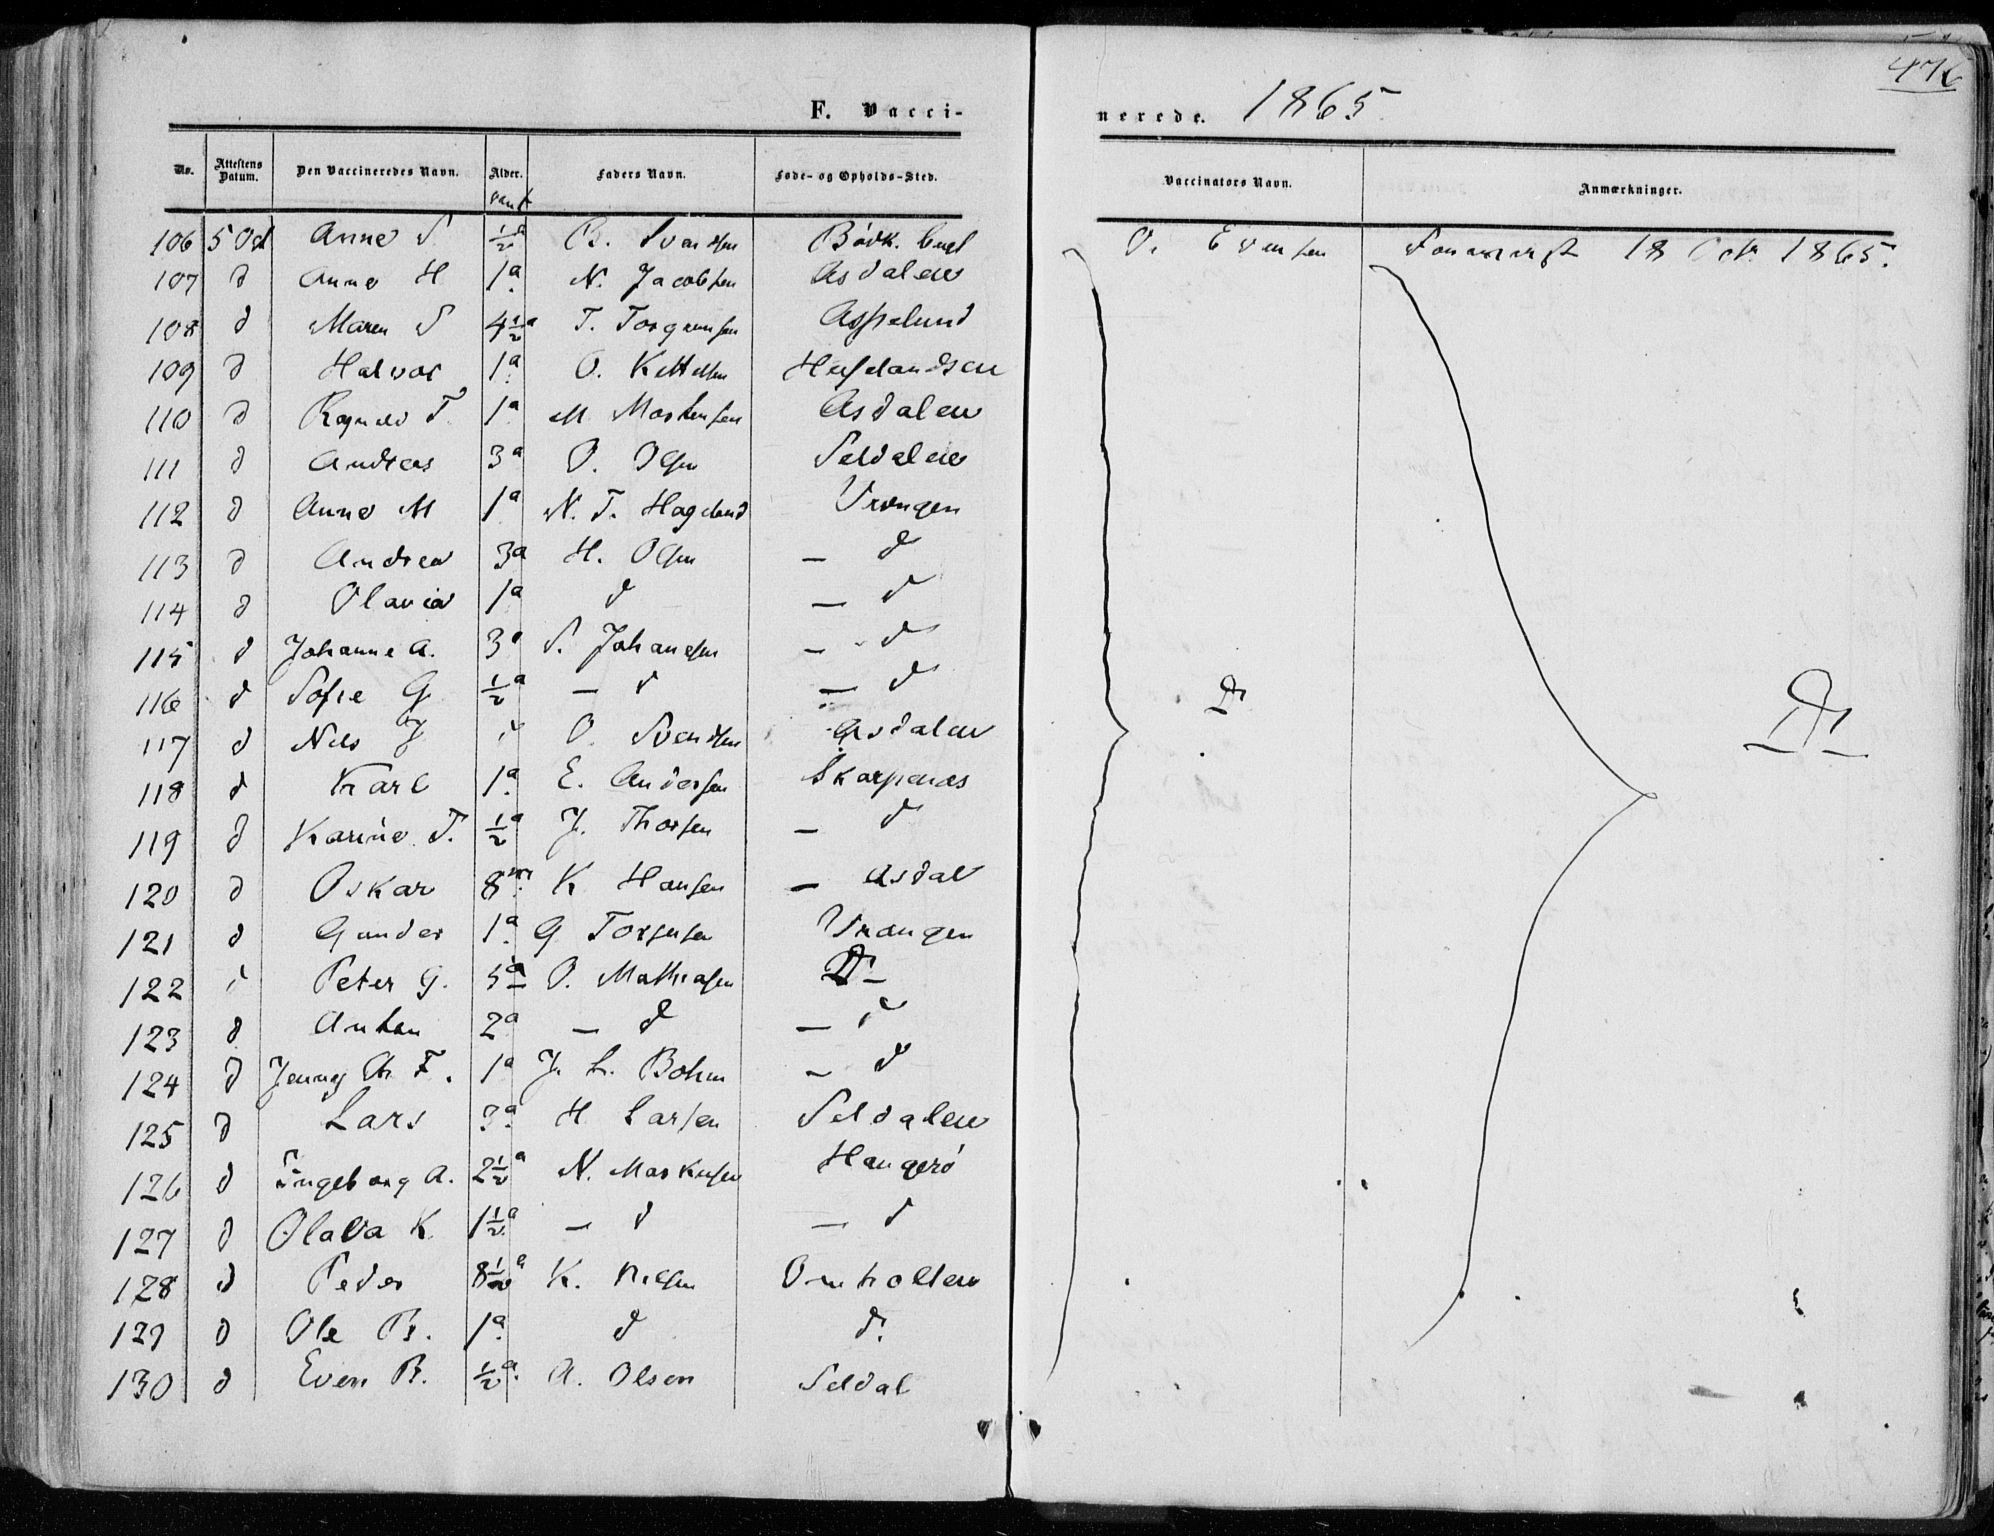 476
F. Vacci-
nerede. 1865.
No. Attestens Datum. Den Vaccineredes Navn. Alder. Faders Navn. Føde- og Opholds-Sted. Vaccinators Navn. Anmærkninger.
106 5 Oct Anne S. ½ a B. Svendsen Bödk. O. Evensen 18 Oct. 1865.
107 d Anne H 1 a N. Jacobsen Asdalen
108 d Maren S 4½ a T. Torgrimsen Asselund
109 d Halvor 1 a O. Kittelsen
110 d T. 1 a M. Mortensen Asdalen
111 d Andreas 3 a O. Olsen Seldalen
112 d Anne M 1 a N. T. Hagelund Vrengen
113 d Andrea 3 a H. Olsen — d
114 d Olavia 1 a d — d
115 d Johanne A. 3 a S. Johansen — d
116 d Sofie G ½ a — d — d
117 d Nils J d O. Svendsen Asdalen
118 d Karl 1 a E. Andersen Skarpenes
119 d Karine T. ½ a J. Thorsen — d
120 d Oskar 8 m K Hansen — Asdal
121 d Gunder 1 a G Torjusen Vrangen
122 d Peter G. 5 a O. Mathiasen D —
123 d Anton 2 a — d — d
124 d Jenny Ch F. 1 a J. L. Bohm — d
125 d Lars 3 a H Larsen Seldalen
126 d Ingeborg A. 2½ a N. Markusen Haugerö
127 d Olava K. 1½ a — d — d
128 d Peder 8½ a K. Nilsen Omholten
129 d Ole B. 1 a d d.
130 d Even B. ½ a A. Olsen Seldal